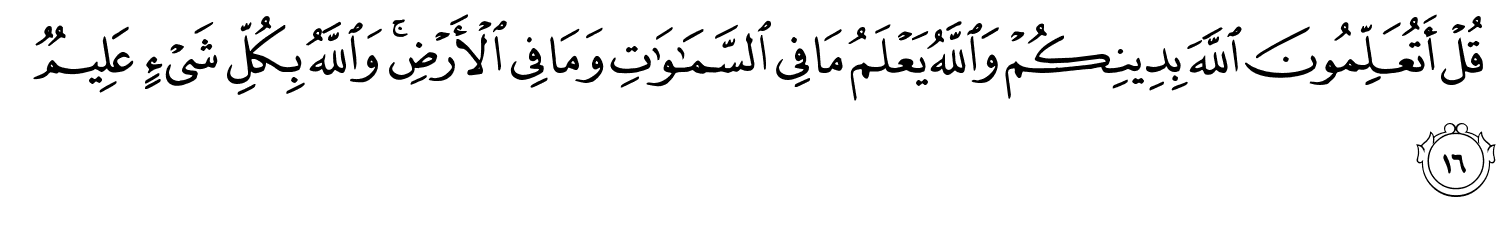 قُلْ أَتُعَلِّمُونَ ٱللَّهَ بِدِينِكُمْ وَٱللَّهُ يَعْلَمُ مَا فِى ٱلسَّمَـٰوَٰتِ وَمَا فِى ٱلْأَرْضِ ۚ وَٱللَّهُ بِكُلِّ شَىْءٍ عَلِيمٌ
١٦